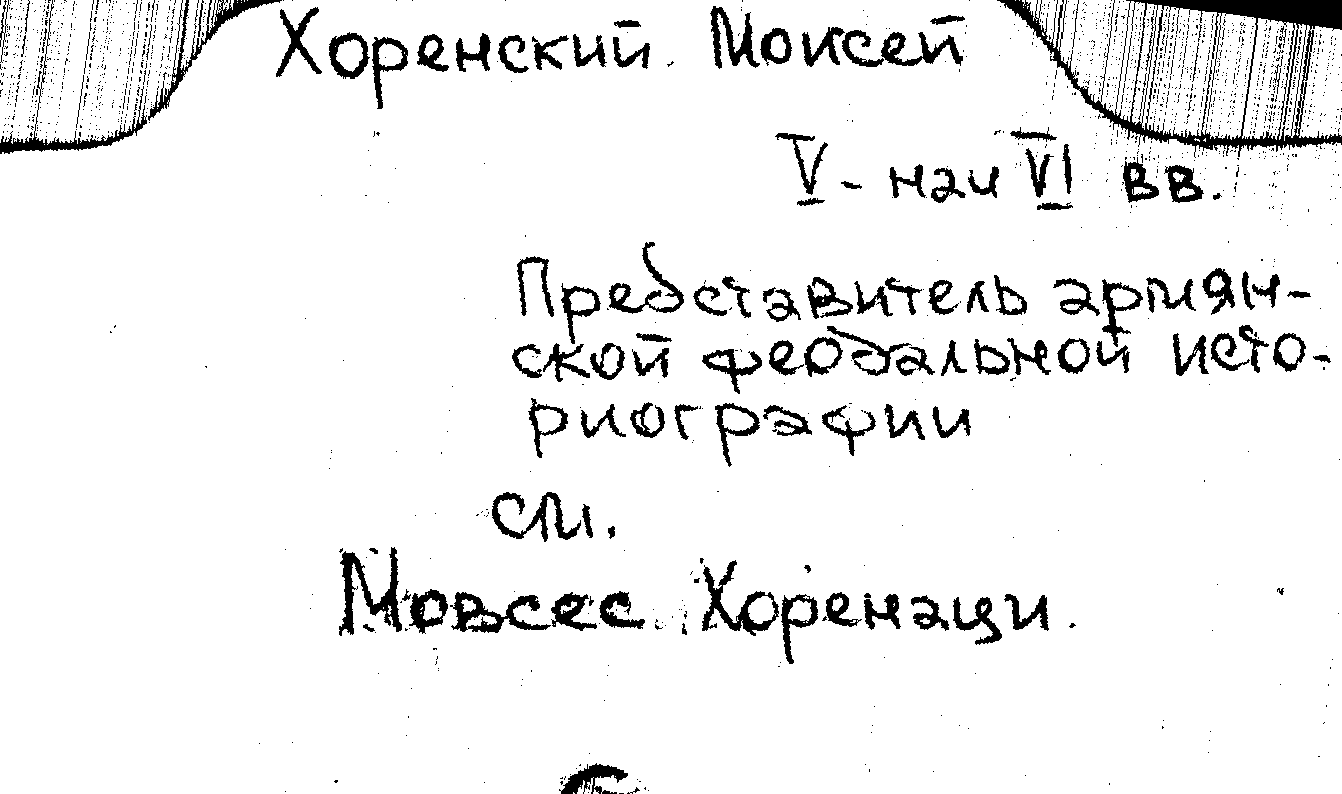 Хоренский Моисей
V - нач VI вв.
Представитель армян-
ской феодальной исто-
риографии
см.
Мовсес Хоренаци.